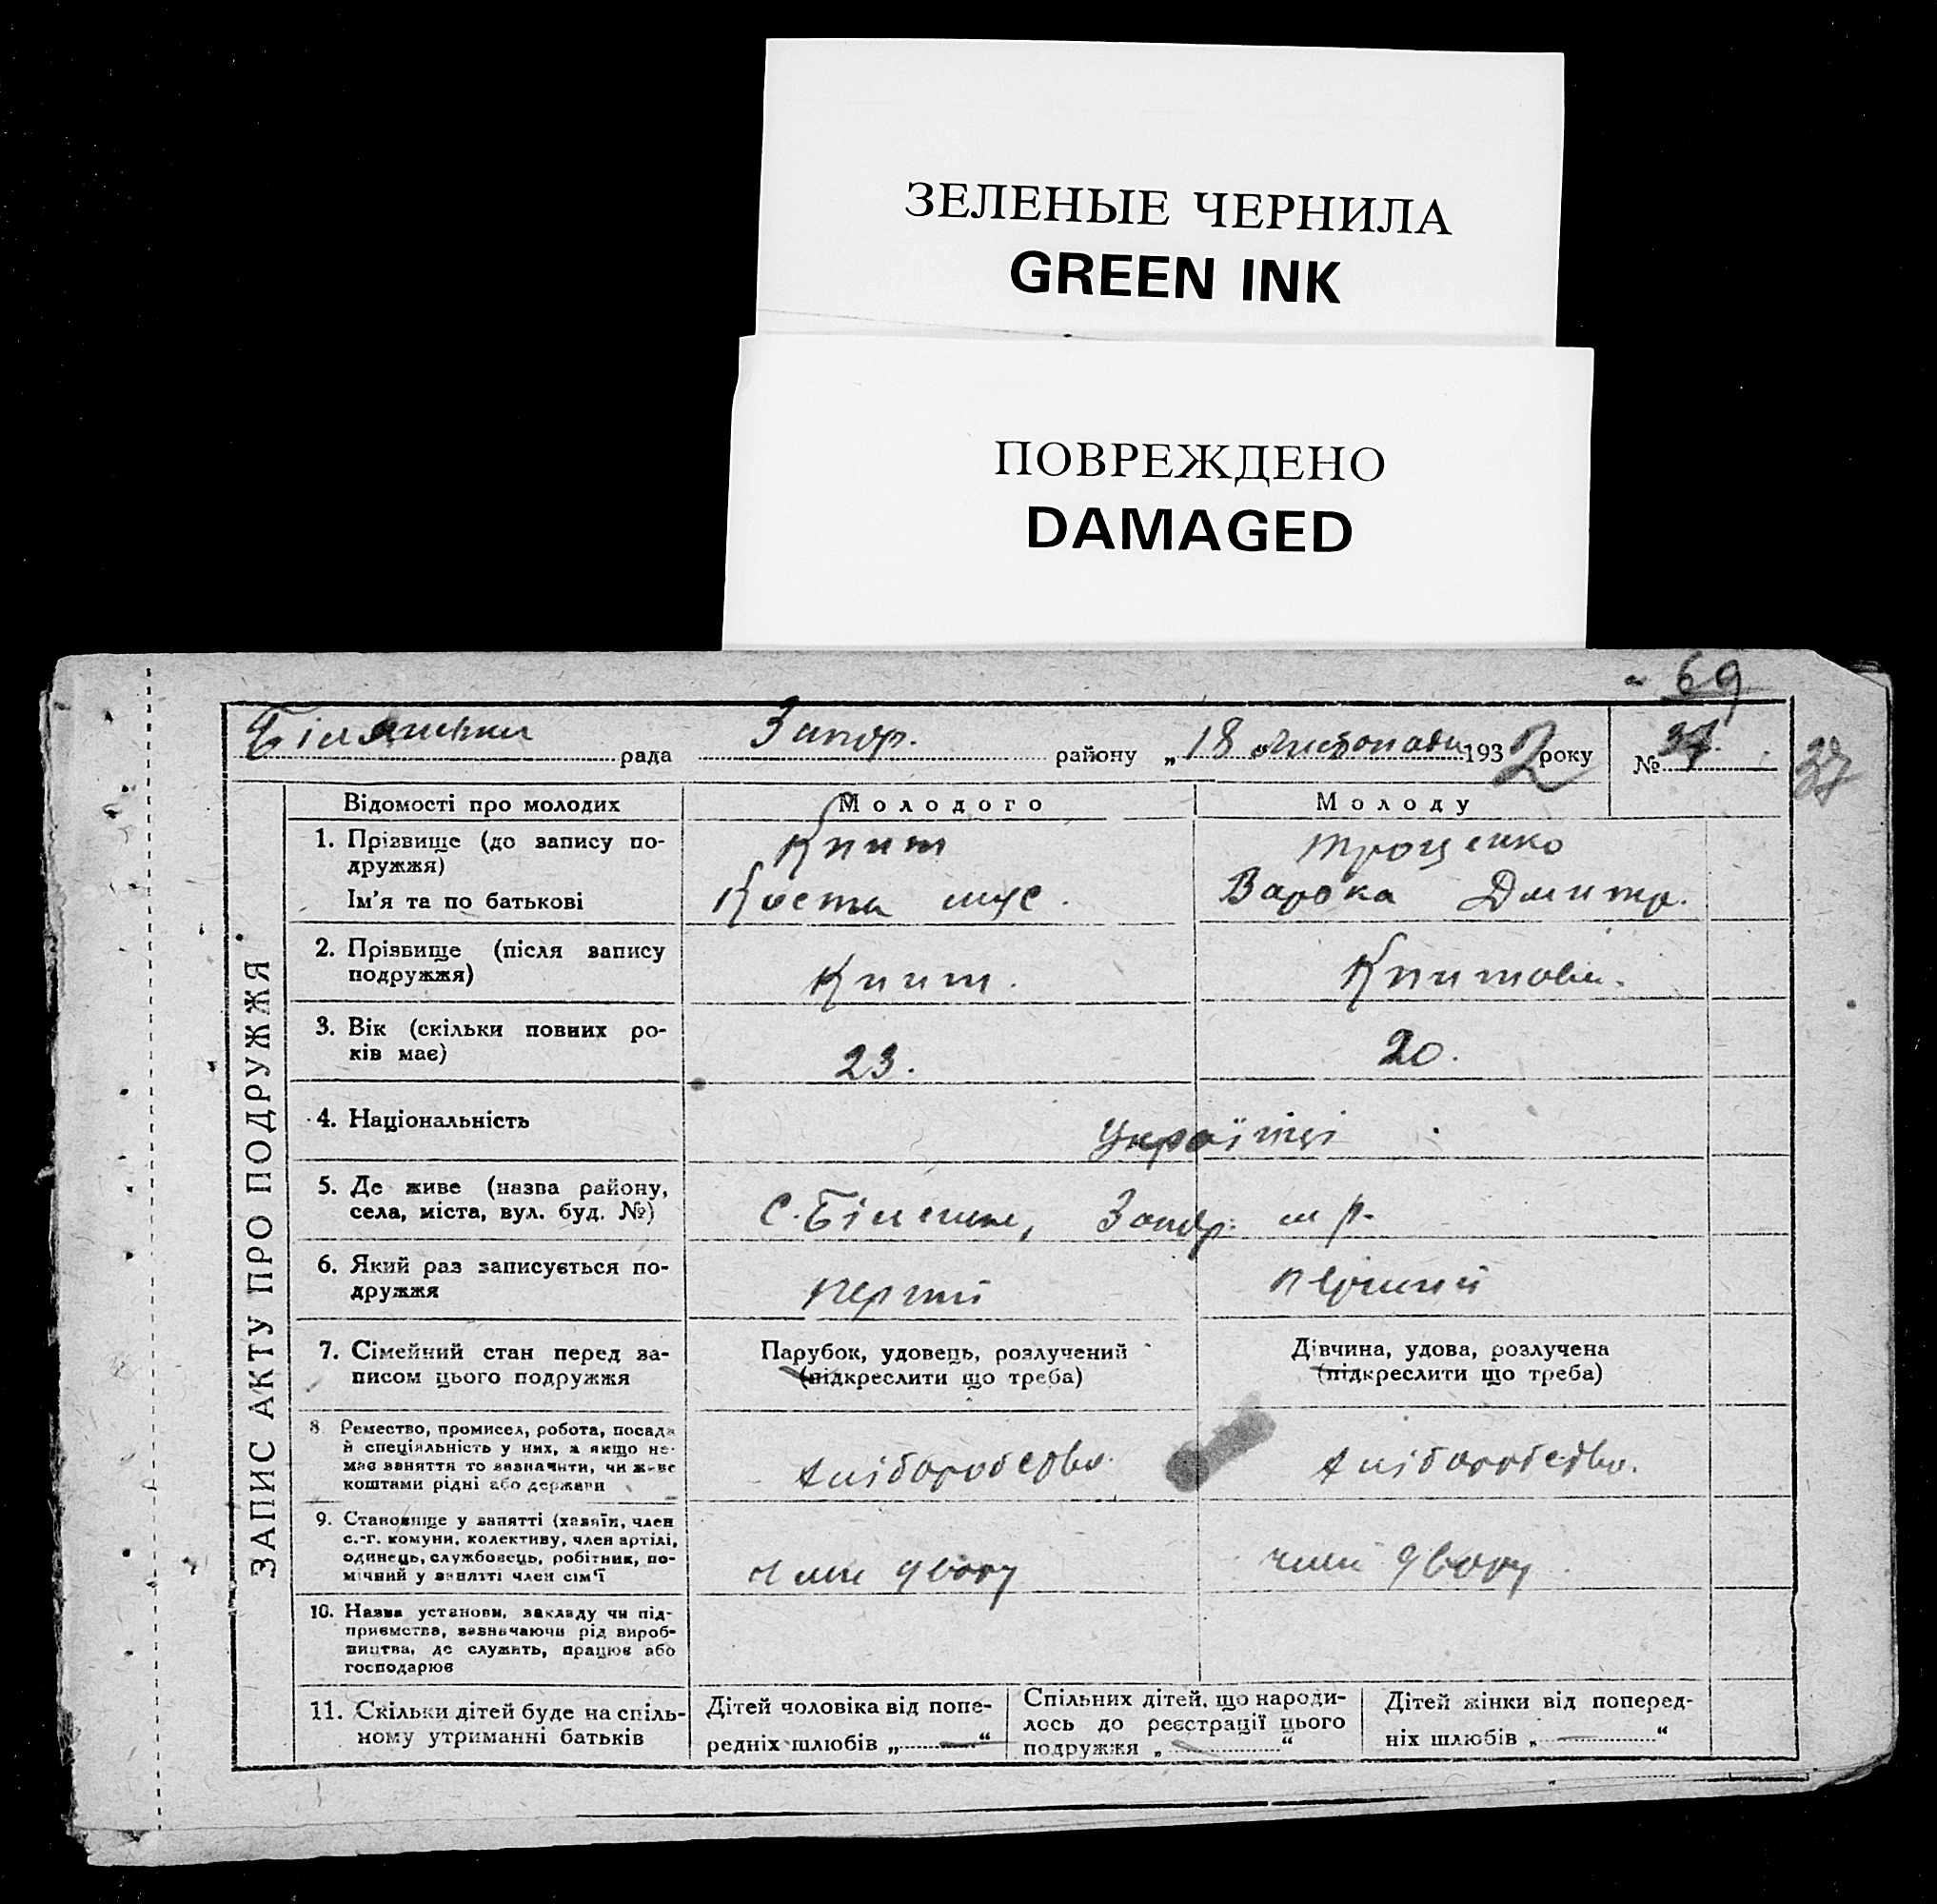 ЗЕЛЕНЫЕ ЧЕРНИЛА
GREEN INK
ПОВРЕЖДЕНО
DAMAGED
69
рада Запор. району „18" листопада 1932 року № 37.
37
ЗАПИС АКТУ ПРО ПОДРУЖЖЯ
Відомості про молодих
Молодого
Молоду
1. Прізвище (до запису по-
дружжя)
Ім'я та по батькові
Книш
Троценко
Варвка Дмитр.
2. Прізвище (після запису
подружжя)
Книш.
Книшова.
3. Вік (скільки повних ро-
ків має)
23.
20.
4. Національність
Українці
5. Де живе (назва району,
села, міста, вул. буд. №)
С. Біленьке, Запор. р.
6. Який раз записується по-
дружжя
перший
перший
7. Сімейний стан перед за-
писом цього подружжя
Парубок, удовець, розлучений
(підкреслити що треба)
Дівчина, удова, розлучена
(підкреслити що треба)
8. Ремество, промисел, робота, посада
й спеціяльність у них, а якщо не-
має заняття то зазначити, чи живе
коштами рідні або держави
хліборобство.
хліборобство.
9. Становище у занятті (хазяїн, член
с.-г. комуни, колективу, член артілі,
одинець, службовець, робітник, по-
мічний у занятті член сім'ї
член двору
член двору
10. Назва установи, закладу чи під-
приємства, зазначаючи рід вироб-
ництва, де служить, працює або
господарює
11. Скільки дітей буде на спіль-
ному утриманні батьків
Дітей чоловіка від попе-
редніх шлюбів „ — "
Спільних дітей, що народи-
лось до реєстрації цього
подружжя „ — "
Дітей жінки від поперед-
ніх шлюбів „ — "